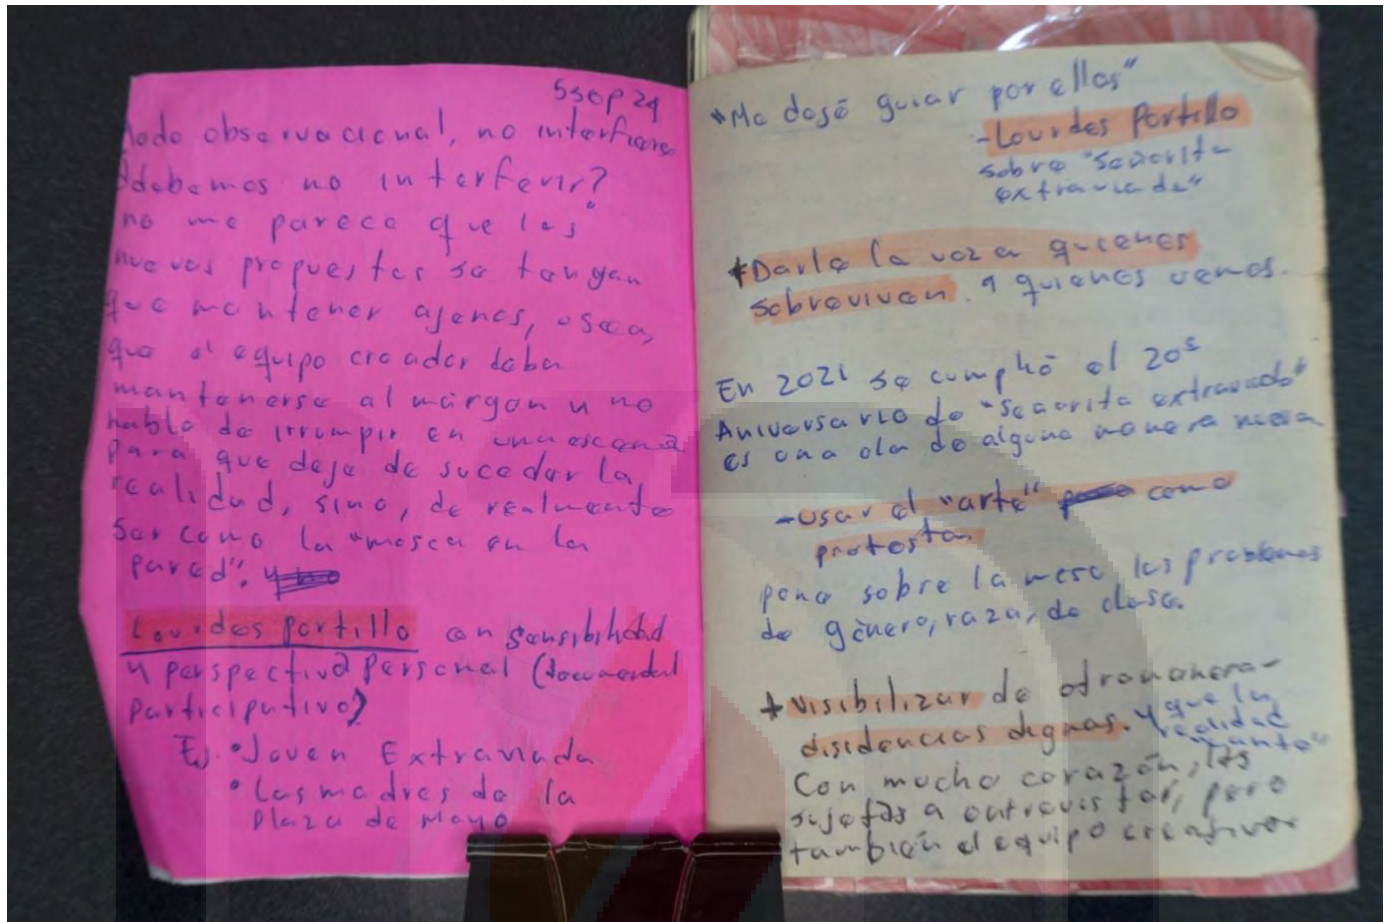 5 sep 24
Modo observacional, no interfiere
¿debemos no interferir?
no me parece que las
nuevas propuestas se tengan
que mantener ajenas, osea,
que el equipo creador deba
mantenerse al márgen y no
hablo de irrumpir en una escena
para que deje de suceder la
realidad, sino, de realmente
ser como la "mosca en la
pared".
Lourdes Portillo con sensibilidad
y perspectiva personal (documental
participativo)
Ej. • Joven Extraviada
• Las madres de la
Plaza de Mayo
"Me dejé guiar por ellas"
- Lourdes Portillo
sobre "Señorita
extraviada"
+ Darle la voz a quienes
sobreviven. a quienes vemos.
En 2021 se cumplió el 20º
Aniversario de "Señorita extraviada"
es una de alguna manera nueva
- Usar el "arte" como
protesta
pone sobre la mesa los problemas
de género, raza, de clase.
+ Visibilizar de otra manera -
disidencias dignas. y que la
realidad
Con mucho corazón, las
sujetas a entrevistar, pero
también el equipo creativo